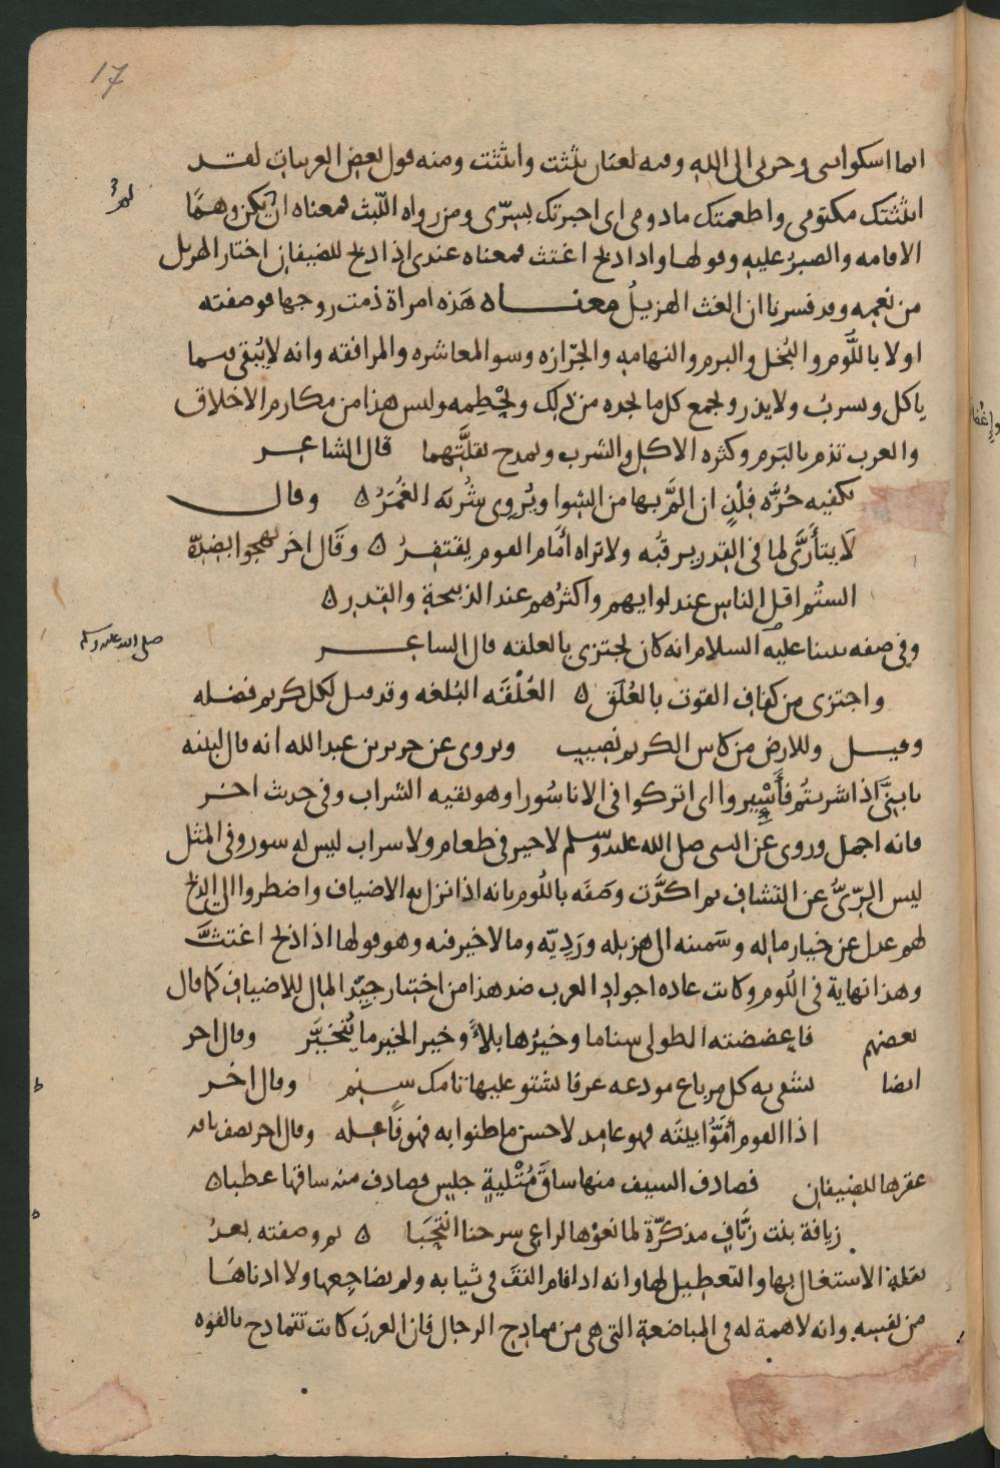 17
انما اشكوا بثى وحزنى الى الله وفيه لغتان بثثت وابثثت ومنه قول بعض العربيات لقد
ابثثتك مكتومى واطعمتك مادومى اى اخبرتك بسرّى ومن رواه اللّبث فمعناه ان يكن وهمًا
لم
الاقامه والصبرُ عليه وقولها واذا ذبح اغتث فمعناه عندى اذا ذبح للضيفان اختار الهزيل
من نعمه وقد فسرنا ان الغث الهزيلُ معناه هذه امراة ذمت زوجها فوصفته
اولا باللَّوم والبُخل والبرم والنهامه والجَزازه وسو المعاشره والمرافقه وانه لا يُبقى مما
ياكل ويشربُ ولا يذر ويجمع كل ما يجده من ذلك ويَحْطِمه وليس هذا من مكارم الاخلاق
والعرب تذم بالبَرم وكثره الاكل والشرب وتمدح بقلَّتهما قال الشاعر
تكفيه حُزَّه فِلْذٍ ان المَّ بها من الشوا ويُرْوى شُربَه الغُمَرُ ٥ وقال
لَا يتأَرَّى لما فى القِدر يرقبُه ولا تراه أمَام القوم يقتفرُ ٥ وقَال اخر يهجوا بضدّه
الستُم اقل الناس عند لوايهم واكثرُهم عند الذبيحةِ والقدر ٥
وفى صفه نبينا عليه السلام انه كان يجتزى بالعلقه قال الشاعر
صلى الله عليه وسلم
واجتزى من كفاف القوت بالعُلَق ٥ العُلْقَه البُلغه وقد قيل لكل كريم فضله
وقيل وللارض من كاس الكريم نصيب ويروى عن جرير بن عبد الله انه قال لبنيه
يا بنىَّ اذا شربتُم فأَسْيِروا اى اتركوا فى الانا سُورا وهو بقيه الشراب وفى حديث اخر
فانه اجمل وروى عن النبى صلى الله عليه وسلم لا خير فى طعام ولا شراب ليس له سور وفى المثل
ليس الرّىُّ عن التشاف ثم اكدَّت وصَفَه باللُوم بانه اذا نزل به الاضياف واضطروا الى الذبح
لهم عدل عن خيار ماله وسَمينه الى هزيله ورَدِيّه وما لا خير فيه وهو قولها اذا ذبح اغتثَّ
وهذا نهاية فى اللُوم وكانت عاده اجواد العرب ضد هذا من اختيار جيّد المال للاضياف كما قال
بعضهم فاعضضته الطولى سناما وخيرُها بلاءً وخير الخير ما يُتخيَّر وقال اخر
ايضا تتقى به كل مرباع مودعه عرفا تشتو عليها تامك سنم وقال اخر
اذا القوم أمّوُّا بيتَه فهو عامد لاحسن ما ظنوا به فهو فَاعله وقال اخر يصف ناقه
عقرها للضيفان فصادف السيف منها ساقَ مُتْليةٍ جلس فصادف منه ساقها عطبا ٥
زيافة بنت زيَّاف مذكرّة لما نعوْها لراعى سرحنا انتَحَبَا ٥ ثم وصفته بعدُ
بقلة الاشتغال بها والتعطيل لها وانه اذا نام التفَّ فى ثيابه ولم يضاجعها ولا ادناهَا
من نفسِه وانه لا همة له فى المباضعة التى هى من ممادح الرجال فان العرب كانت تتمادح بالقوه